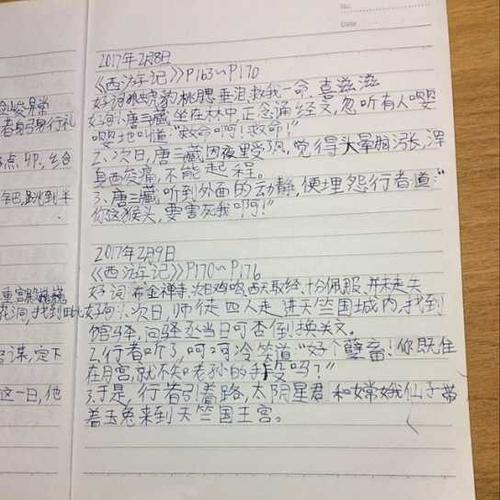 No.
Date
2017年2月8日
《西游记》P163~P170
好词:虎豹 桃腮 垂泪 救我一命 喜滋滋
好词:1.唐三藏坐在林中正念诵经文,忽听有人嘤
嘤地叫道:"救命啊!救命!"
2、次日,唐三藏因夜里受了风,觉得头晕脑涨,浑
身酸痛,不能起程。
3、唐三藏听到外面的动静,便埋怨行者道:"
你这猴头,要害死我啊!"
2017年2月9日
《西游记》P170~P176
好词:布金禅寺 次日鸡鸣 西天取经 十分佩服 并未走失
好句:1、次日,师徒四人走进天竺国城内,找到
馆驿,问驿丞当日可否倒换关文。
2.行者听了,呵呵冷笑道"好个孽畜!你既住
在月宫,就不知老孙的手段吗?"
3.于是,行者引着路,太阴星君和嫦娥仙子带
着玉兔来到天竺国王宫。
者身后行礼
跳到半
找到
谋,定下
这一日,他